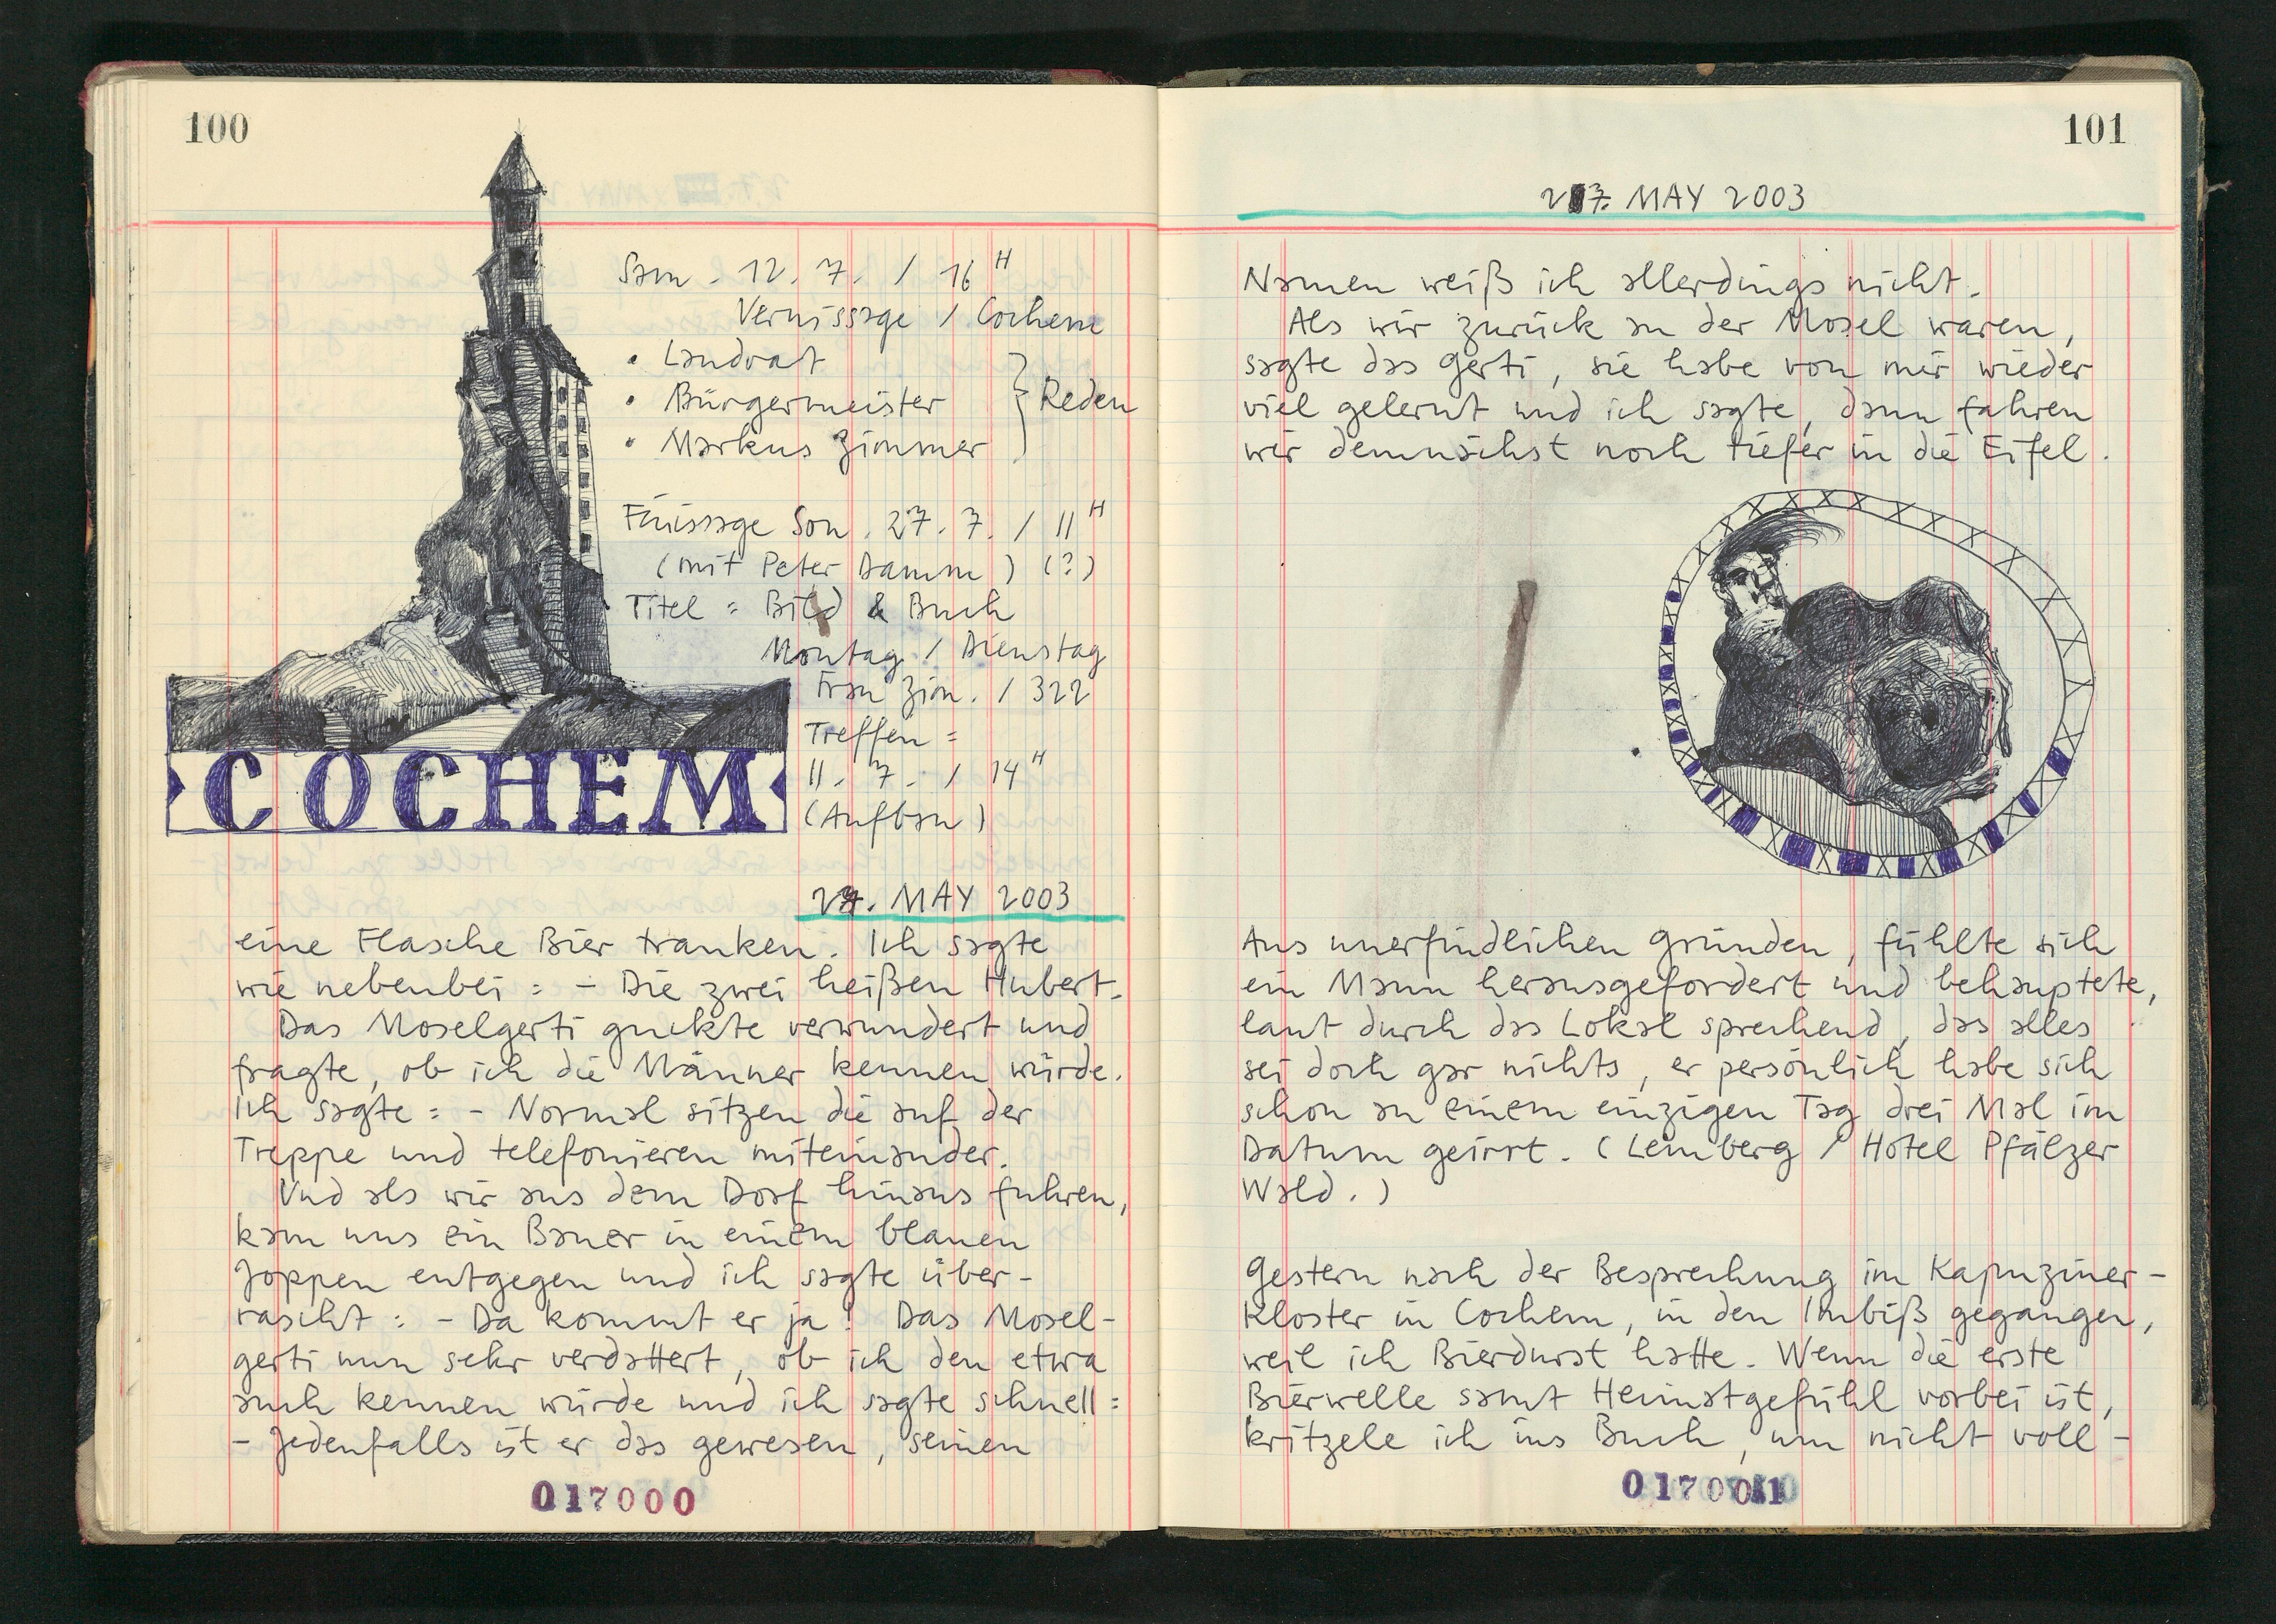 100
Sam. 12. 7. / 16 H
Vernissage / Cochem
• Landrat
• Bürgermeister
• Markus Zimmer
} Reden
Finissage Son. 27. 7. / 11 H
(mit Peter Damm) (?)
Titel = Bild & Buch
Montag / Dienstag
Frau Zim. / 322
Treffen =
11. 7. / 14 H
(Aufbau)
COCHEM
27. MAY 2003
eine Flasche Bier tranken. Ich sagte
wie nebenbei = - Die zwei heißen Hubert.
Das Moselgerti guckte verwundert und
fragte, ob ich die Männer kennen würde.
Ich sagte = - Normal sitzen die auf der
Treppe und telefonieren miteinander.
Und als wir aus dem Dorf hinaus fuhren,
kam uns ein Bauer in einem blauen
Joppen entgegen und ich sagte über-
rascht : - Da kommt er ja! Das Mosel-
gerti nun sehr verdattert, ob ich den etwa
auch kennen würde und ich sagte schnell =
- Jedenfalls ist er das gewesen, seinen
017000
101
27. MAY 2003
Namen weiß ich allerdings nicht.
Als wir zurück an der Mosel waren,
sagte das Gerti, sie habe von mir wieder
viel gelernt und ich sagte, dann fahren
wir demnächst noch tiefer in die Eifel.
Aus unerfindlichen Gründen, fühlte sich
ein Mann herausgefordert und behauptete,
laut durch das Lokal sprechend, das alles
sei doch gar nichts, er persönlich habe sich
schon an einem einzigen Tag drei Mal im
Datum geirrt. (Lemberg / Hotel Pfälzer
Wald.)
Gestern nach der Besprechung im Kapuziner-
Kloster in Cochem, in den Imbiß gegangen,
weil ich Bierdurst hatte. Wenn die erste
Bierwelle samt Heimatgefühl vorbei ist,
kritzele ich ins Buch, um nicht voll-
017001